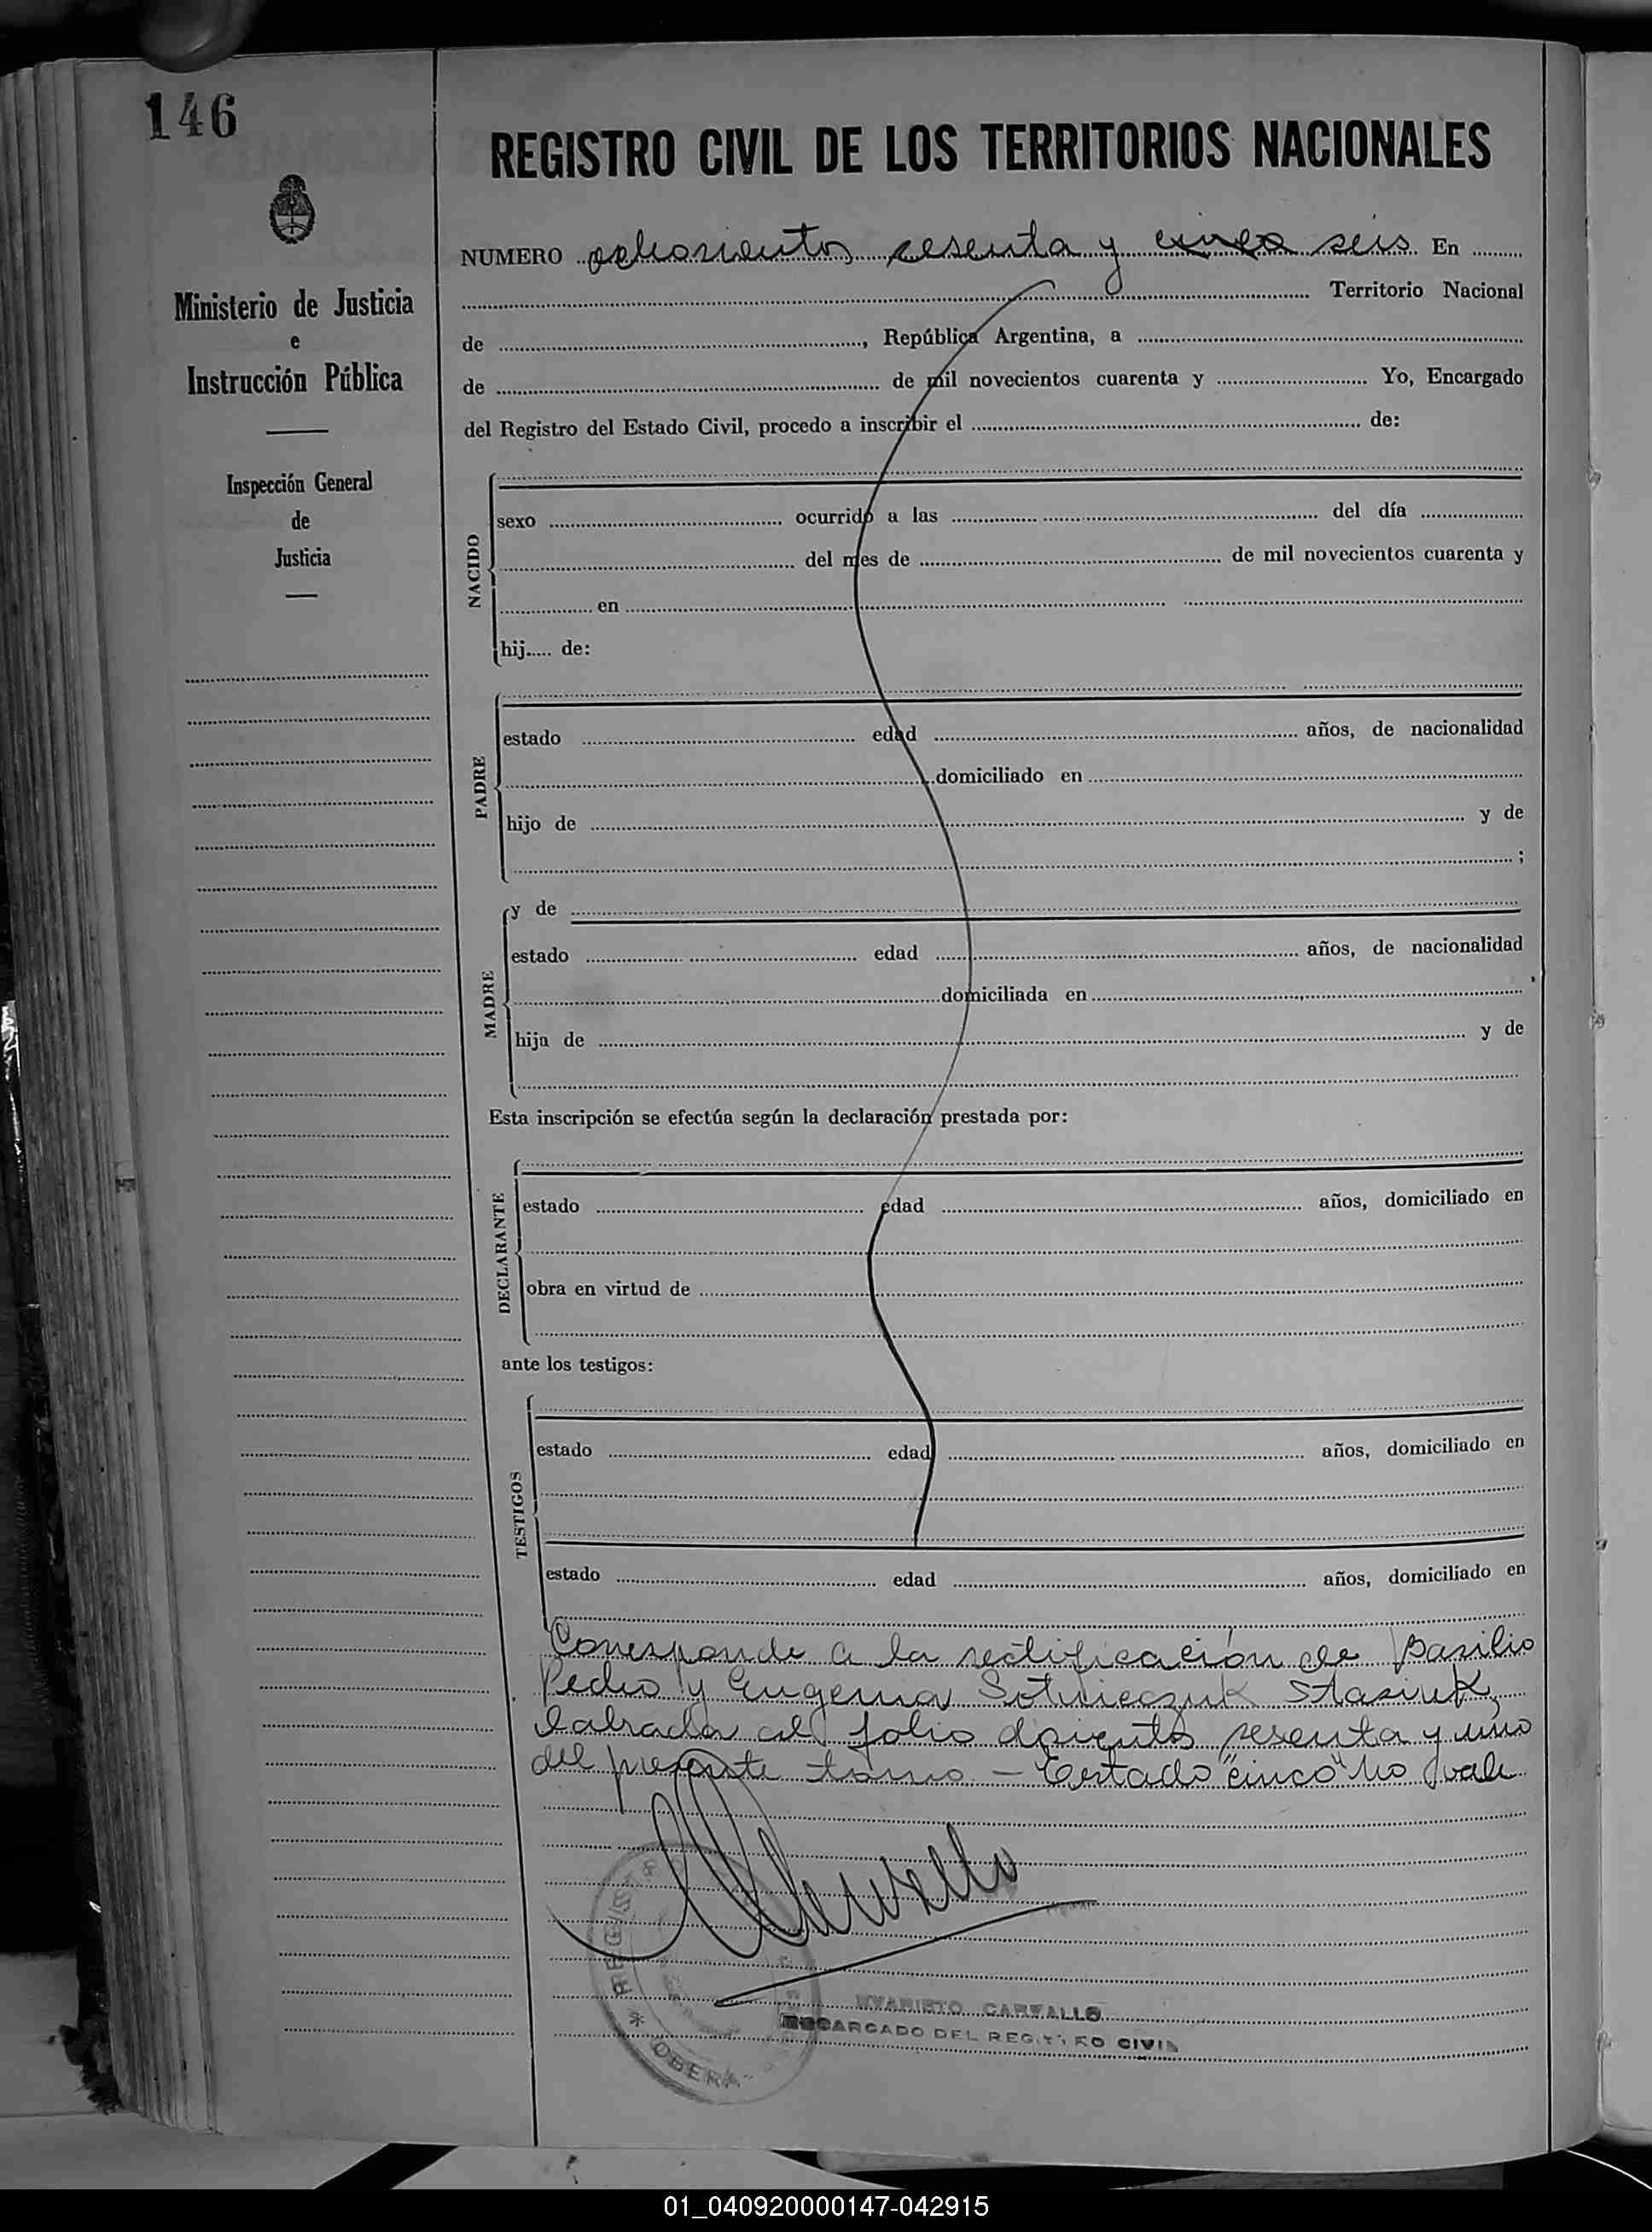 146
REGISTRO CIVIL DE LOS TERRITORIOS NACIONALES
NUMERO ochocientos sesenta y cinco seis En
Territorio Nacional
de , República Argentina, a
de de mil novecientos cuarenta y Yo, Encargado
del Registro del Estado Civil, procedo a inscribir el de:
Ministerio de Justicia
e
Instrucción Pública
Inspección General
de
Justicia
NACIDO
sexo ocurrido a las del día
del mes de de mil novecientos cuarenta y
en
hij..... de:
PADRE
estado edad años, de nacionalidad
domiciliado en
hijo de y de
;
MADRE
y de
estado edad años, de nacionalidad
domiciliada en
hija de y de
Esta inscripción se efectúa según la declaración prestada por:
DECLARANTE
estado edad años, domiciliado en
obra en virtud de
ante los testigos:
TESTIGOS
estado edad años, domiciliado en
estado edad años, domiciliado en
Corresponde a la rectificación de Basilio
Pedro y Eugenia Stasiuk,
labrada al folio sesenta y uno
del presente tomo. — Testado "cinco" no vale
REGISTRO
OBERA
CARVALLO
ENCARGADO DEL REGISTRO CIVIL
01_040920000147-042915